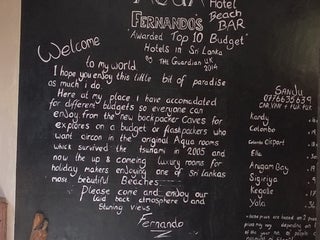 AQUA Hotel
FERNANDOS Beach BAR
"Awarded Top 10 Budget"
Hotels in Sri Lanka
By The Guardian UK
2014
Welcome
to my world
I hope you enjoy this little bit of paradise
as much i do
Here at my place i have accomadated
for different budgets so everyone can
enjoy. from the new backpacker Caves for
explores on a budget or flashpackers who
want circon in the original Aqua rooms
which survived the tsunami in 2005 and
now the up & comeing luxury rooms for
holiday makers enjoying one of Sri lankas
most beautiful Beaches
Please come and enjoy our
laid back atmosphere and
Stunning views
Fernando
SANJU
0776635639
CAR VAN & TUK TUK
Kandy
Colombo
Colombo Airport
Ella
Arugam Bay
Sigiriya
Kegalle
Yala